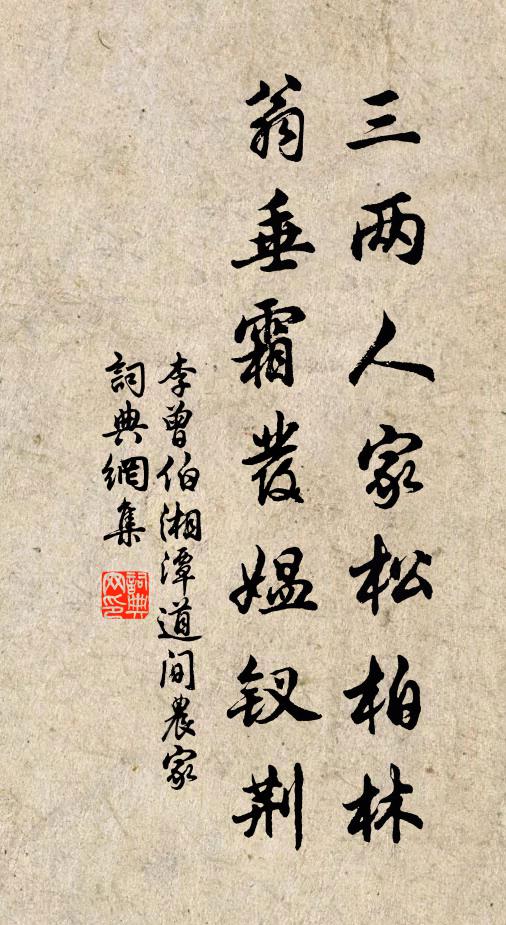 三两人家松柏林
翁垂霜发媪钗荆
李曾伯湘潭道间农家
詞典網集
詞典网印